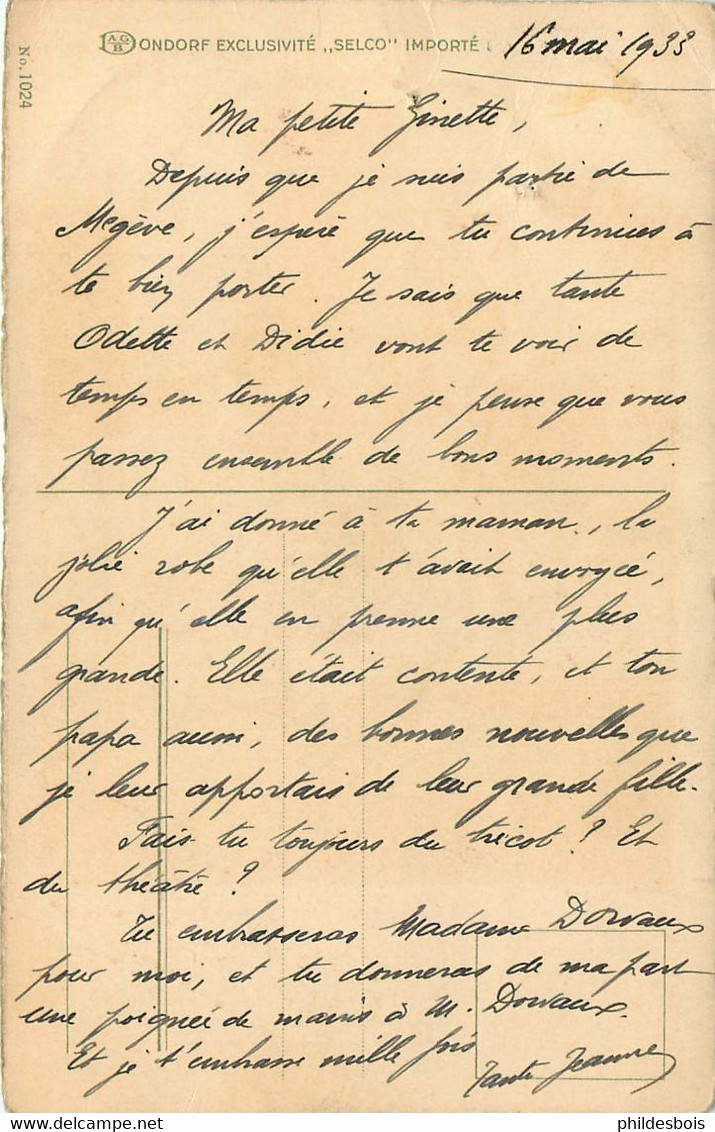 No. 1024
AGB ONDORF EXCLUSIVITÉ „SELCO" IMPORTÉ
16 mai 1933
Ma petite Ginette,
Depuis que je suis partie de
Megève, j'espère que tu continues à
te bien porter. Je sais que tante
Odette et Didie vont te voir de
temps en temps, et je pense que vous
passez ensemble de bons moments.
J'ai donné à ta maman, la
jolie robe qu'elle t'avait envoyée,
afin qu'elle en prenne une plus
grande. Elle était contente, et ton
papa aussi, des bonnes nouvelles que
je leur apportais de leur grande fille.
Fais-tu toujours du tricot ? Et
du théâtre ?
Tu embrasseras Madame Dorvaux
pour moi, et tu donneras de ma part
une poignée de mains à M. Dorvaux.
Et je t'embrasse mille fois
Tante Jeanne
www.delcampe.net
phildesbois